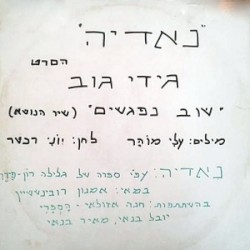 "נאדיה"
הסרט
גידי גוב
"שוב נפגשים" (שיר הנושא)
מילים: עלי מוהר לחן: יוני רכטר
נאדיה: עפ״י ספרה של גלילה רון-פדר
במאי: אמנון רובינשטיין
בהשתתפות: חנה אזולאי-הספרי
יובל בנאי, מאיר בנאי